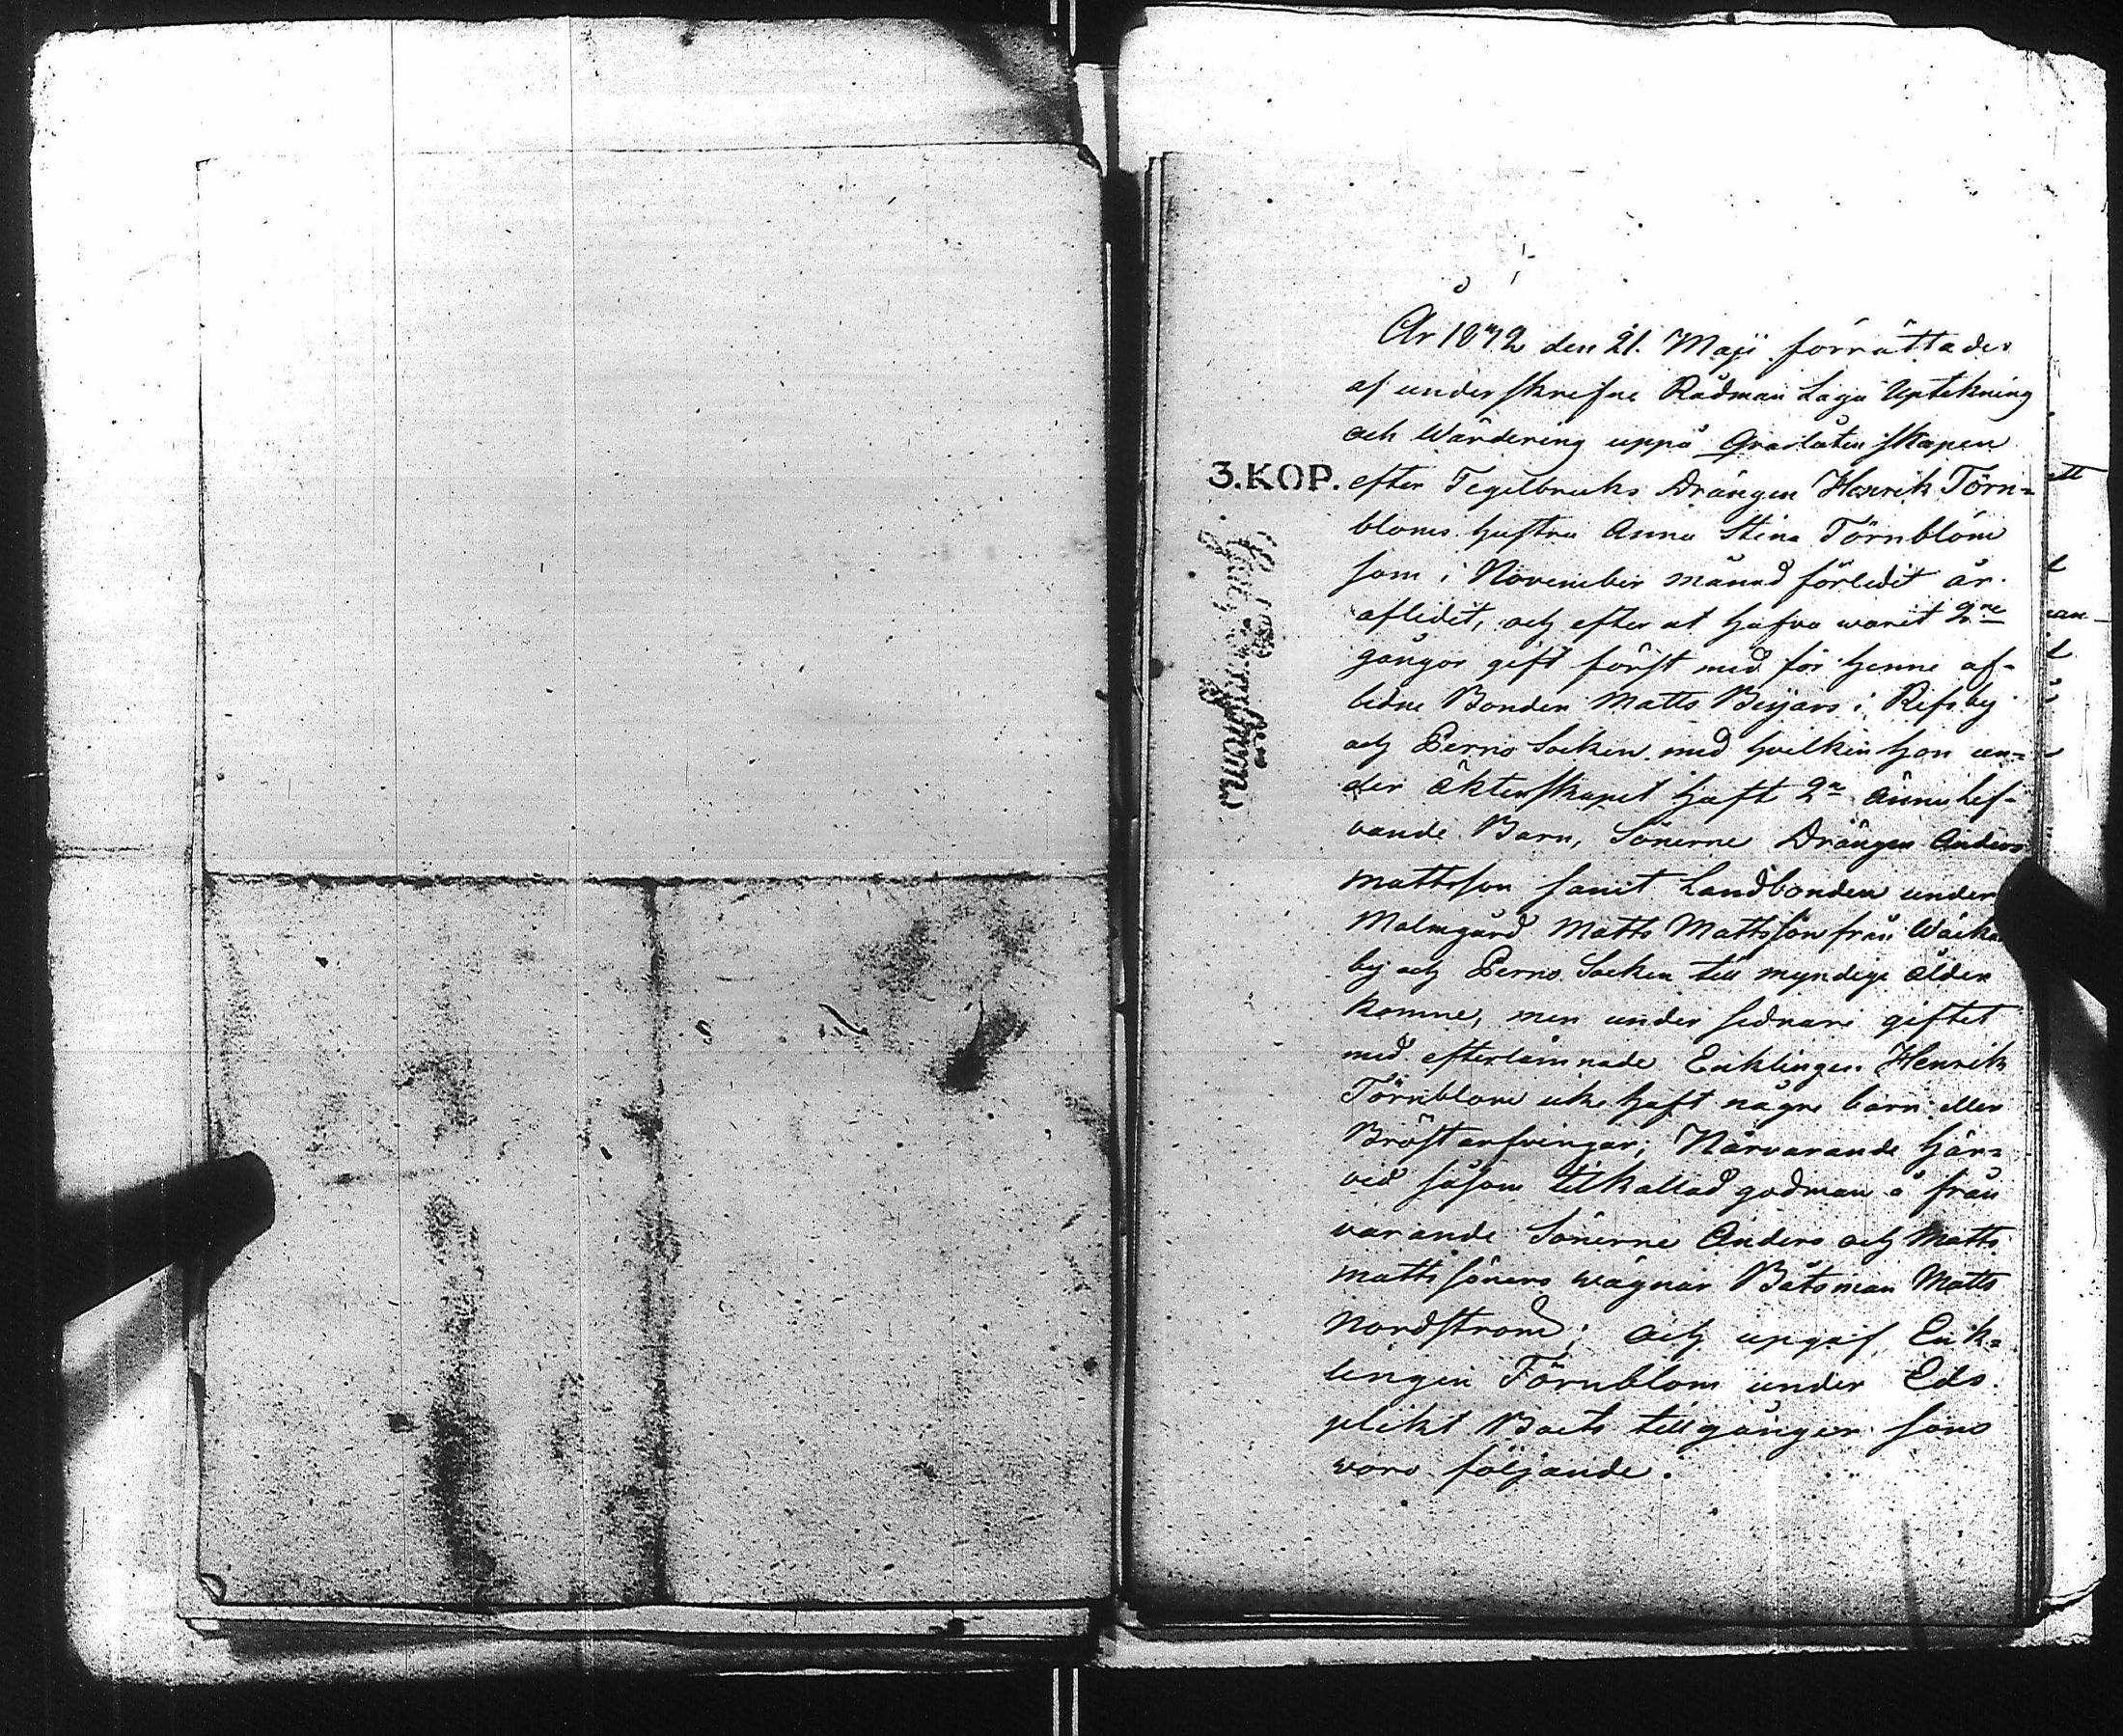 År 1842 den 21. Maji förrättades
af underskrefne Rådman Laga Uptekning
och Wärdering uppå Qvarlåtenskapen
3.KOP.
efter Tegelbruks Drängen Henrik Törn=
bloms hustru Anna Stina Törnblom
som i November månad förledit år
aflidit, och efter at hafva warit 2ne
gångor gift först med för henne af-
lidne Bonden Matts Beijars i Refsby
och Perno Socken med hvilken hon un-
der äktenskapet haft 2ne ännu lef-
vande Barn, Sönerne Drängen Anders
Mattsson samt Landbonden under
Malmgård Matts Mattsson från
by och Perno Socken till myndige ålder
komne, men under sednare giftet
med efterlämnade Enklingen Henrik
Törnblom icke haft någre barn eller
Bröstarfvingar; Närvarande här=
vid såsom tilkallad godman å från
varande Sönerne Anders och Matts
Mattssöners wägnar Båtsman Matts
Nordstrom; och upgaf Enk=
lingen Törnblom under Eds
plikt Boets tillgångar som
voro följande.